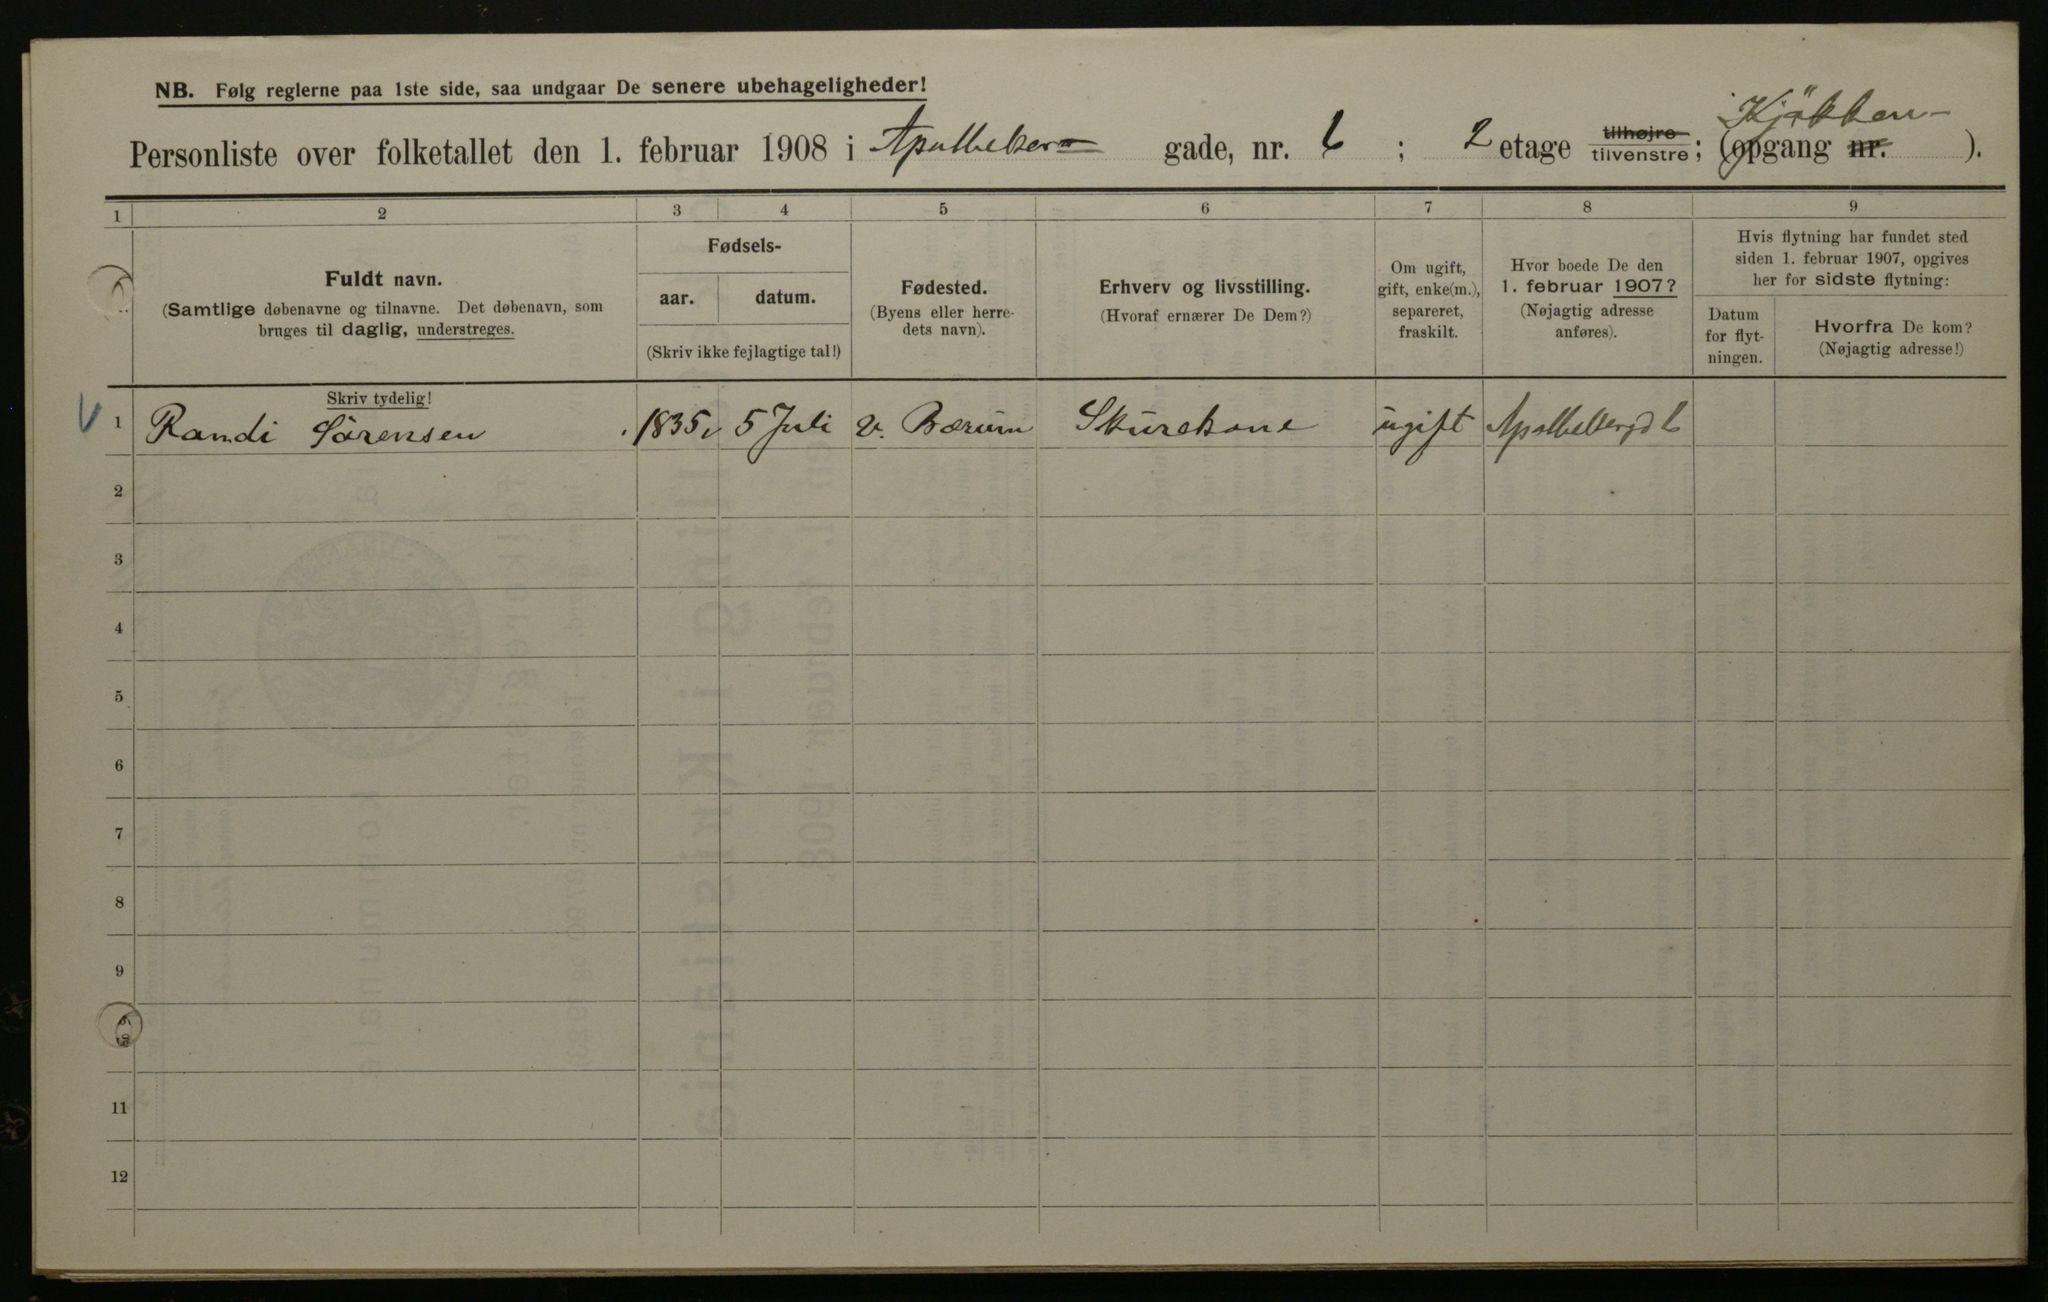 NB. Følg reglerne paa 1ste side, saa undgaar De senere ubehageligheder!
Kjökken-
Personliste over folketallet den 1. februar 1908 i Apotheker- gade, nr. 6 ; 2 etage tilhøjre tilvenstre; (opgang nr. ).
1 2 3 4 5 6 7 8 9
Fuldt navn.
(Samtlige døbenavne og tilnavne. Det døbenavn, som
bruges til daglig, understreges.
Fødsels-
aar. datum.
(Skriv ikke fejlagtige tal!)
Fødested.
(Byens eller herre-
dets navn).
Erhverv og livsstilling.
(Hvoraf ernærer De Dem?)
Om ugift,
gift, enke(m.),
separeret,
fraskilt.
Hvor boede De den
1. februar 1907?
(Nøjagtig adresse
anføres).
Hvis flytning har fundet sted
siden 1. februar 1907, opgives
her for sidste flytning:
Datum
for flyt-
ningen.
Hvorfra De kom?
(Nøjagtig adresse!)
Skriv tydelig!
1 Randi Sörensen 1835 5 Juli v. Bærum Skurekone ugift Apothekergd 6
2
3
4
5
6
7
8
9
11
12